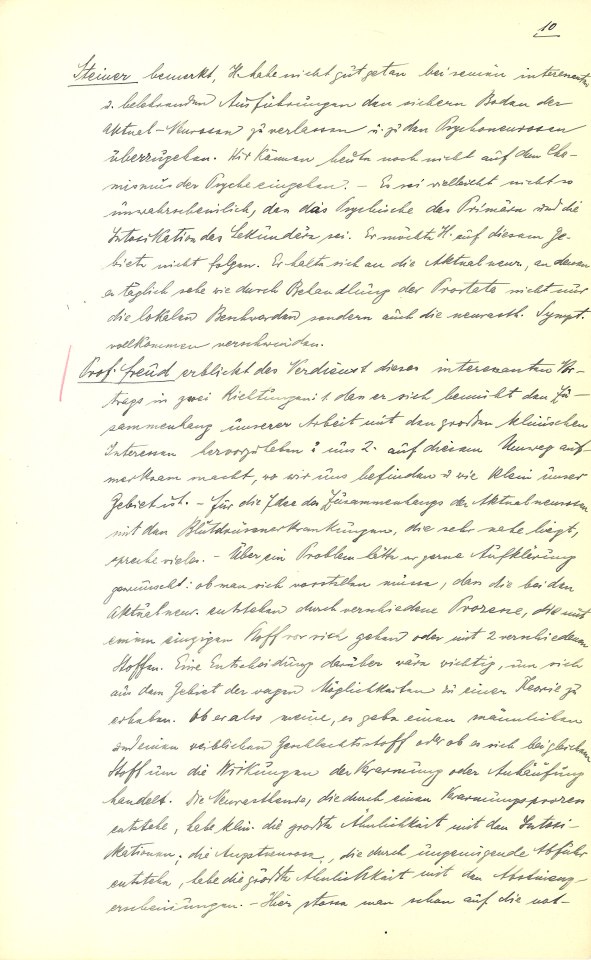 10
Steiner bemerkt, H. habe nicht gut getan bei seinen interessanten
u. belehrenden Ausführungen den sichern Boden der
Aktual-Neurosen zu verlassen u. zu den Psychoneurosen
überzugehen. Wir können heute noch nicht auf den Che-
mismus der Psyche eingehen. – Es sei vielleicht nicht so
unwahrscheinlich, dass das Psychische das Primäre und die
Intoxikation das Sekundäre sei. Er möchte H. auf diesem Ge-
biete nicht folgen. Er halte sich an die Aktualneur., an denen
er täglich sehe wie durch Behandlung der Prostata nicht nur
die lokalen Beschwerden sondern auch die neurasth. Sympt.
vollkommen verschwinden.
Prof. Freud erblickt das Verdienst dieses interessanten Vor-
trags in zwei Richtungen: 1. dass er sich bemüht den Zu-
sammenhang unserer Arbeit mit den großen klinischen
Interessen hervorzuheben u. uns 2. auf diesem Umweg auf-
merksam macht, wo wir uns befinden u. wie klein unser
Gebiet ist. – Für die Idee des Zusammenhangs der Aktualneurosen
mit den Blutdrüsenerkrankungen, die sehr nahe liegt,
spreche vieles. – Über ein Problem hätte er gerne Aufklärung
gewünscht: ob man sich vorstellen müsse, dass die beiden
Aktualneur. entstehen durch verschiedene Prozesse, die mit
einem einzigen Stoff vor sich gehen oder mit 2 verschiedenen
Stoffen. Eine Entscheidung darüber wäre wichtig, um sich
aus dem Gebiet der vagen Möglichkeiten zu einer Teorie zu
erheben. Ob er also meine, es gebe einen männlichen
und einen weiblichen Geschlechtsstoff oder ob es sich bei gleichem
Stoff um die Wirkungen der Verarmung oder Anhäufung
handelt. Die Neurasthenie, die durch einen Verarmungsprozess
entstehe, habe klin. die größte Ähnlichkeit mit den Intoxi-
kationen; die Angstneurose, die durch ungenügende Abfuhr
entstehe, habe die größte Ähnlichkeit mit den Abstinenz-
erscheinungen. – Hier stosse man schon auf die not-